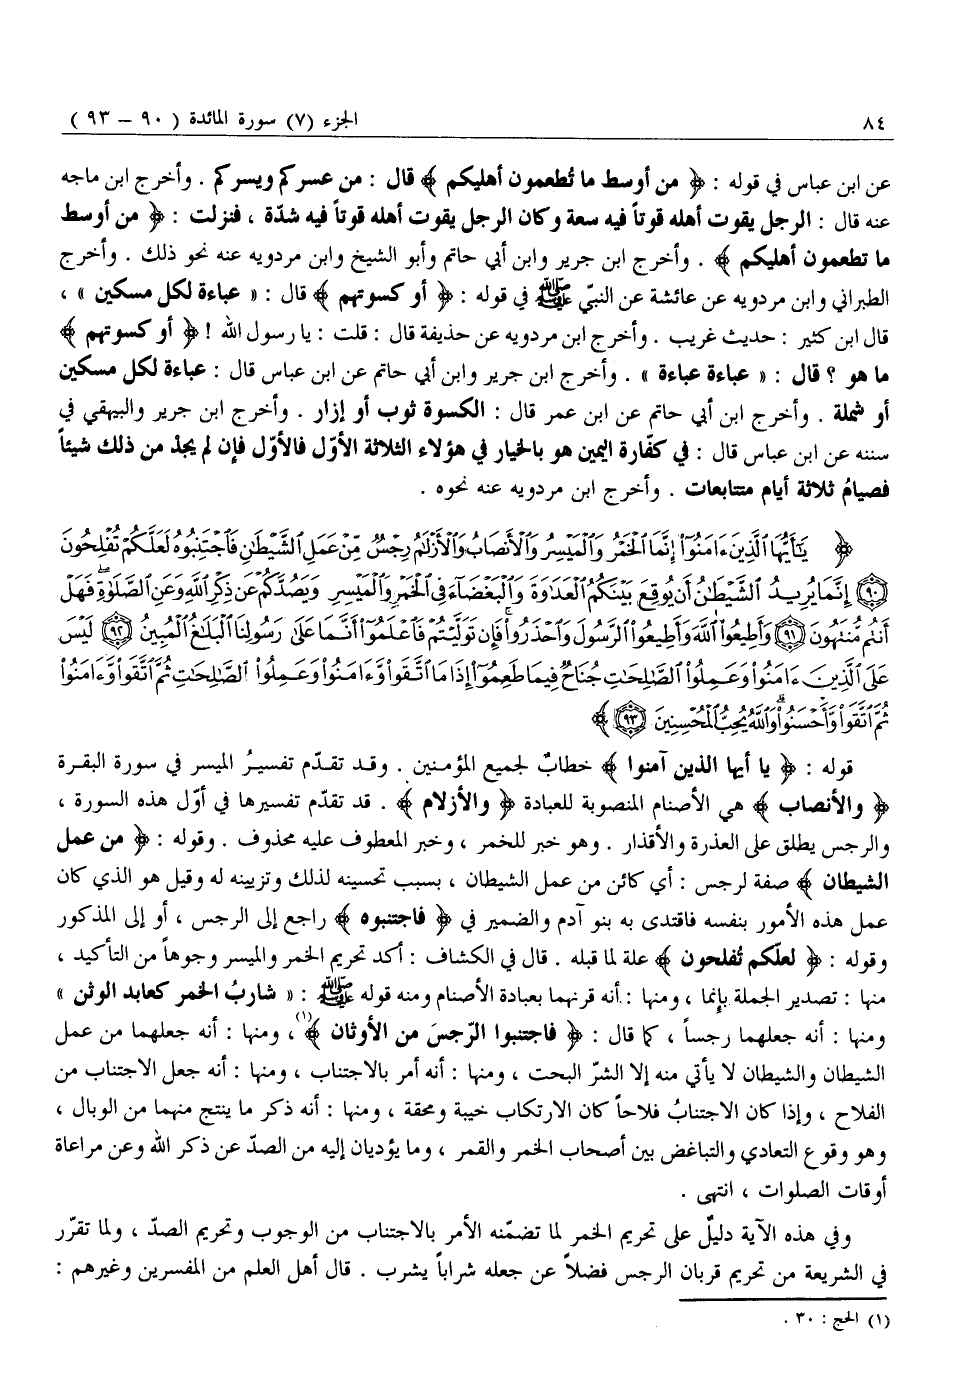 ٨٤ الجزء (٧) سورة المائدة ( ٩٠ – ٩٣ )
عن ابن عباس في قوله : ﴿ من أوسط ما تُطعمون أهليكم ﴾ قال : من عسركم ويسركم . وأخرج ابن ماجه
عنه قال : الرجل يقوت أهله قوتاً فيه سعة وكان الرجل يقوت أهله قوتاً فيه شدّة ، فنزلت : ﴿ من أوسط
ما تطعمون أهليكم ﴾ . وأخرج ابن جرير وابن أبي حاتم وأبو الشيخ وابن مردويه عنه نحو ذلك . وأخرج
الطبراني وابن مردويه عن عائشة عن النبيّ ﷺ في قوله : ﴿ أو كسوتهم ﴾ قال : « عباءة لكل مسكين » ،
قال ابن كثير : حديث غريب . وأخرج ابن مردويه عن حذيفة قال : قلت : يا رسول الله ! ﴿ أو كسوتهم ﴾
ما هو ؟ قال : « عباءة عباءة » . وأخرج ابن جرير وابن أبي حاتم عن ابن عباس قال : عباءة لكل مسكين
أو شملة . وأخرج ابن أبي حاتم عن ابن عمر قال : الكسوة ثوب أو إزار . وأخرج ابن جرير والبيهقي في
سننه عن ابن عباس قال : في كفّارة اليمين هو بالخيار في هؤلاء الثلاثة الأوّل فالأوّل فإن لم يجدْ من ذلك شيئاً
فصيامُ ثلاثة أيام متتابعات . وأخرج ابن مردويه عنه نحوه .
﴿ يَٰٓأَيُّهَا ٱلَّذِينَ ءَامَنُوٓا۟ إِنَّمَا ٱلْخَمْرُ وَٱلْمَيْسِرُ وَٱلْأَنصَابُ وَٱلْأَزْلَٰمُ رِجْسٌ مِّنْ عَمَلِ ٱلشَّيْطَٰنِ فَٱجْتَنِبُوهُ لَعَلَّكُمْ تُفْلِحُونَ
٩٠ إِنَّمَا يُرِيدُ ٱلشَّيْطَٰنُ أَن يُوقِعَ بَيْنَكُمُ ٱلْعَدَٰوَةَ وَٱلْبَغْضَآءَ فِى ٱلْخَمْرِ وَٱلْمَيْسِرِ وَيَصُدَّكُمْ عَن ذِكْرِ ٱللَّهِ وَعَنِ ٱلصَّلَوٰةِ ۖ فَهَلْ
أَنتُم مُّنتَهُونَ ٩١ وَأَطِيعُوا۟ ٱللَّهَ وَأَطِيعُوا۟ ٱلرَّسُولَ وَٱحْذَرُوا۟ ۚ فَإِن تَوَلَّيْتُمْ فَٱعْلَمُوٓا۟ أَنَّمَا عَلَىٰ رَسُولِنَا ٱلْبَلَٰغُ ٱلْمُبِينُ ٩٢ لَيْسَ
عَلَى ٱلَّذِينَ ءَامَنُوا۟ وَعَمِلُوا۟ ٱلصَّٰلِحَٰتِ جُنَاحٌ فِيمَا طَعِمُوٓا۟ إِذَا مَا ٱتَّقَوا۟ وَّءَامَنُوا۟ وَعَمِلُوا۟ ٱلصَّٰلِحَٰتِ ثُمَّ ٱتَّقَوا۟ وَّءَامَنُوا۟
ثُمَّ ٱتَّقَوا۟ وَّأَحْسَنُوا۟ ۗ وَٱللَّهُ يُحِبُّ ٱلْمُحْسِنِينَ ٩٣ ﴾
قوله : ﴿ يا أيها الذين آمنوا ﴾ خطابٌ لجميع المؤمنين . وقد تقدّم تفسيرُ الميسر في سورة البقرة
﴿ والأنصاب ﴾ هي الأصنام المنصوبة للعبادة ﴿ والأزلام ﴾ . قد تقدّم تفسيرها في أوّل هذه السورة ،
والرجس يطلق على العذرة والأقذار . وهو خبر للخمر ، وخبر المعطوف عليه محذوف . وقوله : ﴿ من عمل
الشيطان ﴾ صفة لرجس : أي كائن من عمل الشيطان ، بسبب تحسينه لذلك وتزيينه له وقيل هو الذي كان
عمل هذه الأمور بنفسه فاقتدى به بنو آدم والضمير في ﴿ فاجتنبوه ﴾ راجع إلى الرجس ، أو إلى المذكور
وقوله : ﴿ لعلّكم تُفلحون ﴾ علة لما قبله . قال في الكشاف : أكد تحريم الخمر والميسر وجوهاً من التأكيد ،
منها : تصدير الجملة بإنما ، ومنها : أنه قرنهما بعبادة الأصنام ومنه قوله ﷺ : « شاربُ الخمر كعابد الوثن »
ومنها : أنه جعلهما رجساً ، كما قال : ﴿ فاجتنبوا الرّجسَ من الأوثان ﴾(١) ، ومنها : أنه جعلهما من عمل
الشيطان والشيطان لا يأتي منه إلا الشرّ البحت ، ومنها : أنه أمر بالاجتناب ، ومنها : أنه جعل الاجتناب من
الفلاح ، وإذا كان الاجتنابُ فلاحاً كان الارتكاب خيبة ومحقة ، ومنها : أنه ذكر ما ينتج منهما من الوبال ،
وهو وقوع التعادي والتباغض بين أصحاب الخمر والقمر ، وما يؤديان إليه من الصدّ عن ذكر الله وعن مراعاة
أوقات الصلوات ، انتهى .
وفي هذه الآية دليلٌ على تحريم الخمر لما تضمّنه الأمر بالاجتناب من الوجوب وتحريم الصدّ ، ولما تقرّر
في الشريعة من تحريم قربان الرجس فضلاً عن جعله شراباً يشرب . قال أهل العلم من المفسرين وغيرهم :
(١) الحج : ٣٠ .